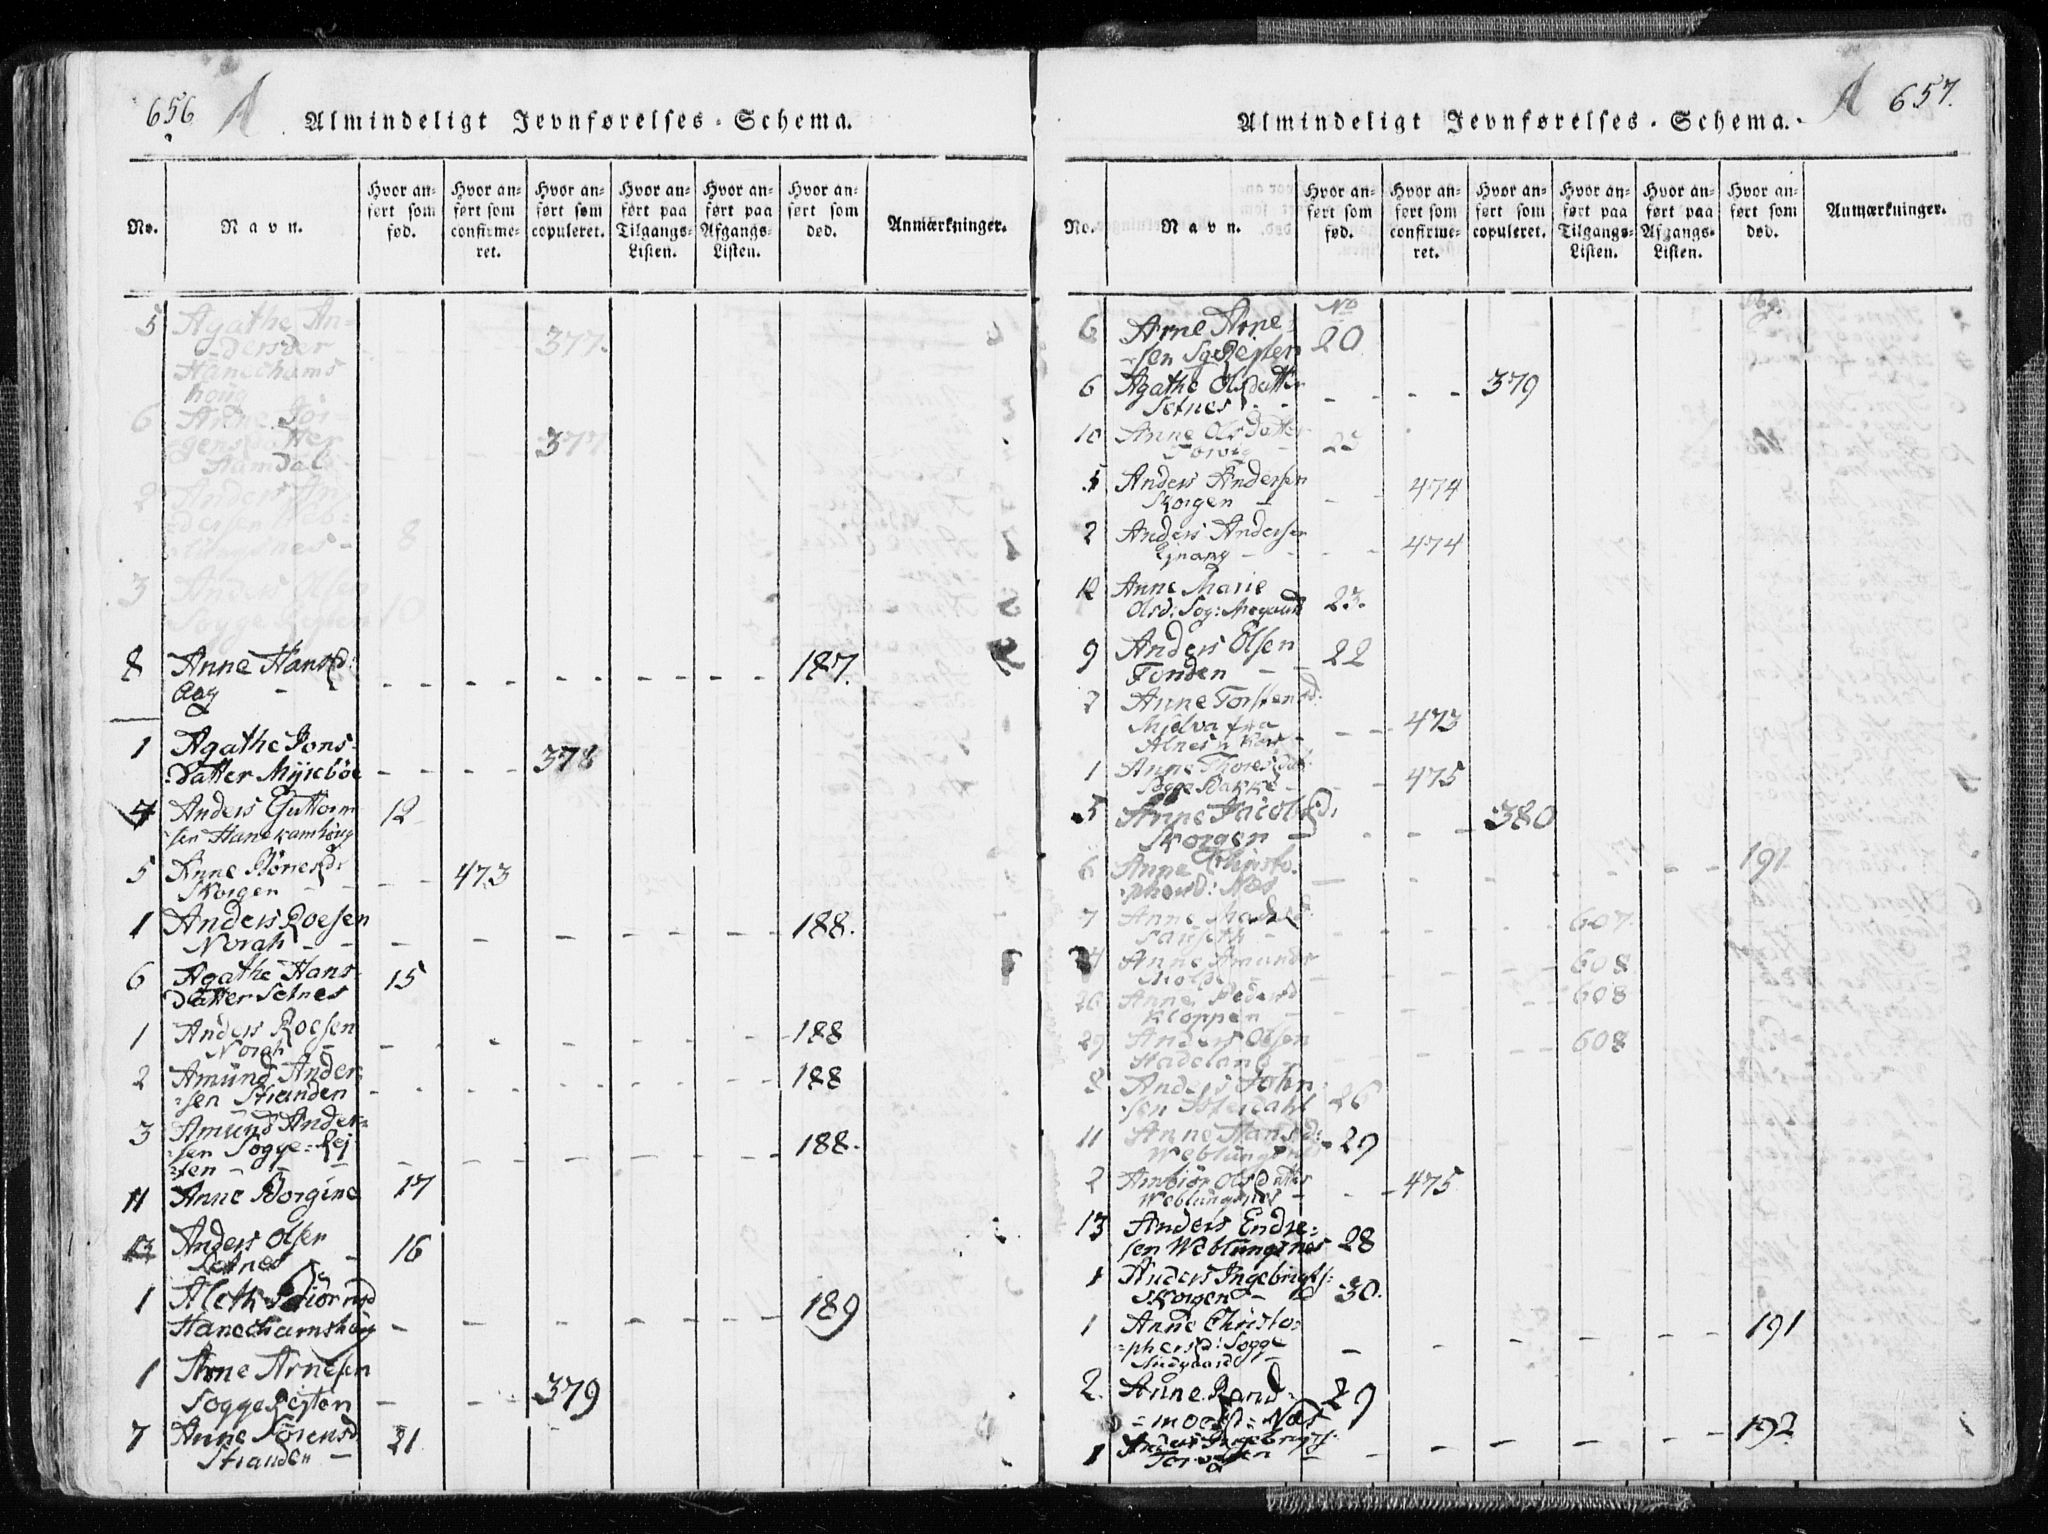 656 A
Almindeligt Jevnførelses-Schema.
No.
Navn.
Hvor an-
ført som
fød.
Hvor an-
ført som
confirme-
ret.
Hvor an-
ført som
copuleret.
Hvor an-
ført paa
Tilgangs-
Listen.
Hvor an-
ført paa
Afgangs-
Listen.
Hvor an-
ført som
død.
Anmærkninger.
5 Agathe An-
dersder
Hanechams
houg 377.
6 Anne Jör-
gensdatter
Hamdal 377
2 Anders An-
dersen Web-
lungsnes - 8
3 Anders Olsen
Sogge Rejsten 10
8 Anne Hansd:
Aag - 187.
1 Agathe Jons-
datter Myrebøe 378
4 Anders Guttorm
sen Hanekamhoug 12
5 Anne
Skorgen 473
1 Anders Roesen
Norah 188.
6 Agathe Hans-
datter Setnes 15
1 Anders Roesen
Norah 188
2 Amund Ander-
sen Stranden 188
3 Amund Ander-
sen Sogge-Rej-
sten 188.
11 Anne Borgine 17
13 Anders Olsen
Setnes 16
1 Aleth Biörnsd
Hanechamshoug 189
1 Arne Arnesen
Sogge Rejsten 379
7 Anne Sörensd
Stranden 21
A 657.
Almindeligt Jevnførelses-Schema.
No.
Navn.
Hvor an-
ført som
fød.
Hvor an-
ført som
confirme-
ret.
Hvor an-
ført som
copuleret.
Hvor an-
ført paa
Tilgangs-
Listen.
Hvor an-
ført paa
Afgangs-
Listen.
Hvor an-
ført som
død.
Anmærkninger.
No
6 Arne Arne-
sen Sg Rejsten 20
6 Agathe Olsdatter
Setnes 379
10 Anne Olsdatter
23
5 Anders Andersen
Skorgen 474
2 Anders Andersen
474
12 Anne Marie
Olsd: Sog: 23.
9 Anders Olsen
Fonden 22
2 Anne Torstensd:
Mjelva fra
Alnes 473
1 Anne Thoresdat
Sogge Bakke 475
5 Anne Jacobsd.
Skorgen 380
6 Anne Christo-
phersd: Næs 191.
7 Anne Madsd.
607.
4 Anne Amunds
Molde 608
26 Anne Pedersd
Kloppen 608
29 Anders Olsen
Hadeland 608
8 Anders John-
sen Isterdahl 26
11 Anne Hansd:
Weblungsnes 29
2 Ambiör Olsdatter
Weblungsnes 475
13 Anders Endre-
sen Weblungsnes 28
1 Anders Ingebrigts:
Skorgen 30.
1 Anne Christo-
phersd: Sogge
Nedgaard 191
2. Anne Rand-
Næs 29
1 Anders Ingebrigts:
192